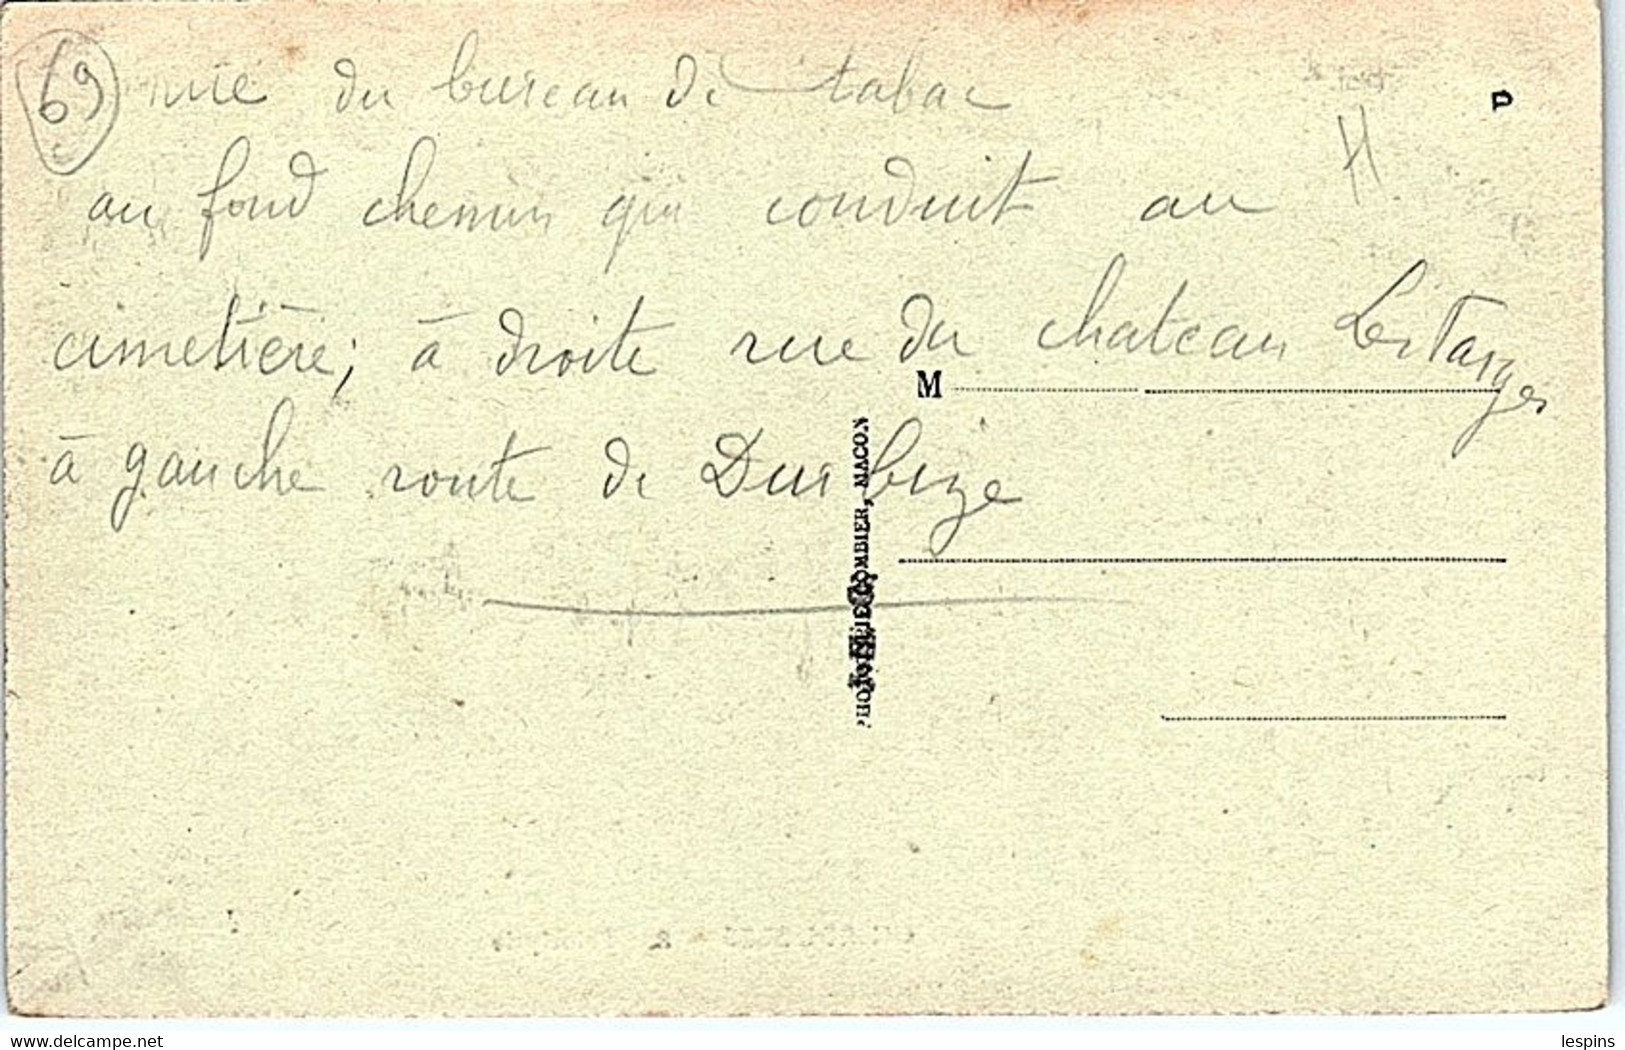 69
rue du bureau de tabac
au fond chemin qui conduit au
cimetière; à droite rue du chateau Lestarges
à gauche route de Durbize
H
D
M
COMBIER, MACON
delcampe.net
lespins